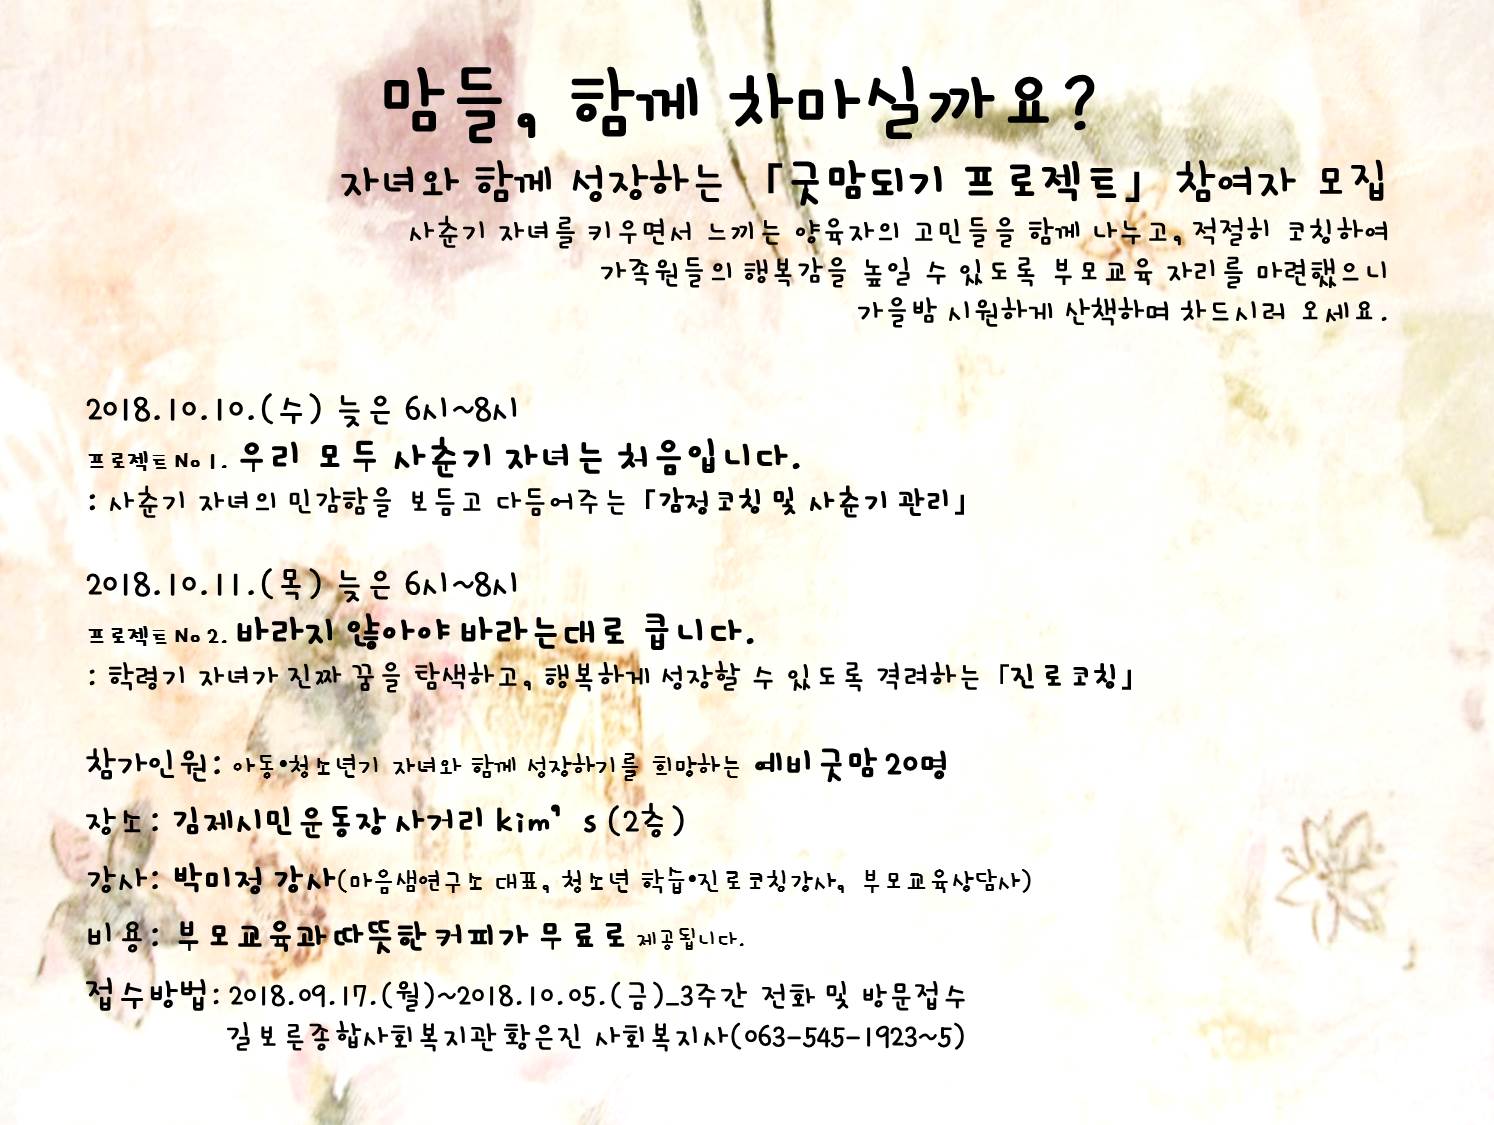 맘들, 함께 차마실까요?
자녀와 함께 성장하는 「굿맘되기 프로젝트」 참여자 모집
사춘기 자녀를 키우면서 느끼는 양육자의 고민들을 함께 나누고, 적절히 코칭하여
가족원들의 행복감을 높일 수 있도록 부모교육 자리를 마련했으니
가을밤 시원하게 산책하며 차드시러 오세요.
2018.10.10.(수) 늦은 6시~8시
프로젝트 No 1. 우리 모두 사춘기 자녀는 처음입니다.
: 사춘기 자녀의 민감함을 보듬고 다듬어주는 「감정코칭 및 사춘기 관리」
2018.10.11.(목) 늦은 6시~8시
프로젝트 No 2. 바라지 않아야 바라는대로 큽니다.
: 학령기 자녀가 진짜 꿈을 탐색하고, 행복하게 성장할 수 있도록 격려하는 「진로코칭」
참가인원: 아동•청소년기 자녀와 함께 성장하기를 희망하는 예비굿맘 20명
장소: 김제시민운동장 사거리 kim’s (2층)
강사: 박미정 강사(마음샘연구소 대표, 청소년 학습•진로코칭강사, 부모교육상담사)
비용: 부모교육과 따뜻한 커피가 무료로 제공됩니다.
접수방법: 2018.09.17.(월)~2018.10.05.(금)_3주간 전화 및 방문접수
길보른종합사회복지관 황은진 사회복지사(063-545-1923~5)